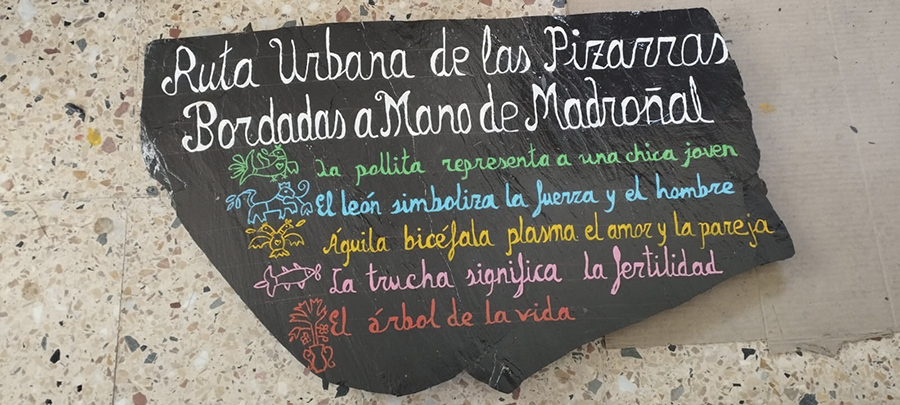 Ruta Urbana de las Pizarras
Bordadas a Mano de Madroñal
La pollita representa a una chica joven
El león simboliza la fuerza y el hombre
Águila bicéfala plasma el amor y la pareja
La trucha significa la fertilidad
El árbol de la vida